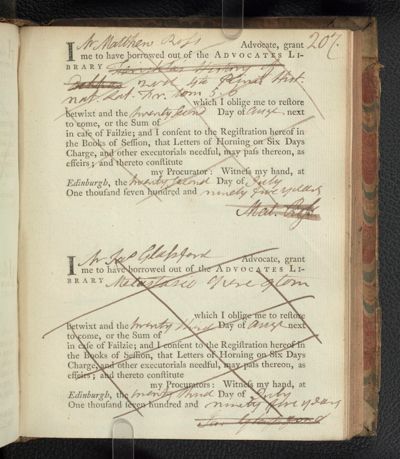 207.
I Mr Matthew Ross Advocate, grant
me to have borrowed out of the ADVOCATES LI-
BRARY
nat. Lat. tom 5. 6
which I oblige me to restore
betwixt and the twenty second Day of Augt. next
to come, or the Sum of
in case of Failzie; and I consent to the Registration hereof in
the Books of Session, that Letters of Horning on Six Days
Charge, and other executorials needful, may pass thereon, as
effeirs; and thereto constitute
my Procurator: Witness my hand, at
Edinburgh, the twenty second Day of July
One thousand seven hundred and ninety five years
Mat. Ross
I Mr Jas Glassford Advocate, grant
me to have borrowed out of the ADVOCATES LI-
BRARY Metastasio Opere tom
which I oblige me to restore
betwixt and the twenty third Day of Augt next
to come, or the Sum of
in case of Failzie; and I consent to the Registration hereof in
the Books of Session, that Letters of Horning on Six Days
Charge, and other executorials needful, may pass thereon, as
effeirs; and thereto constitute
my Procurators: Witness my hand, at
Edinburgh, the twenty third Day of July
One thousand seven hundred and ninety five years
Jas. Glassford